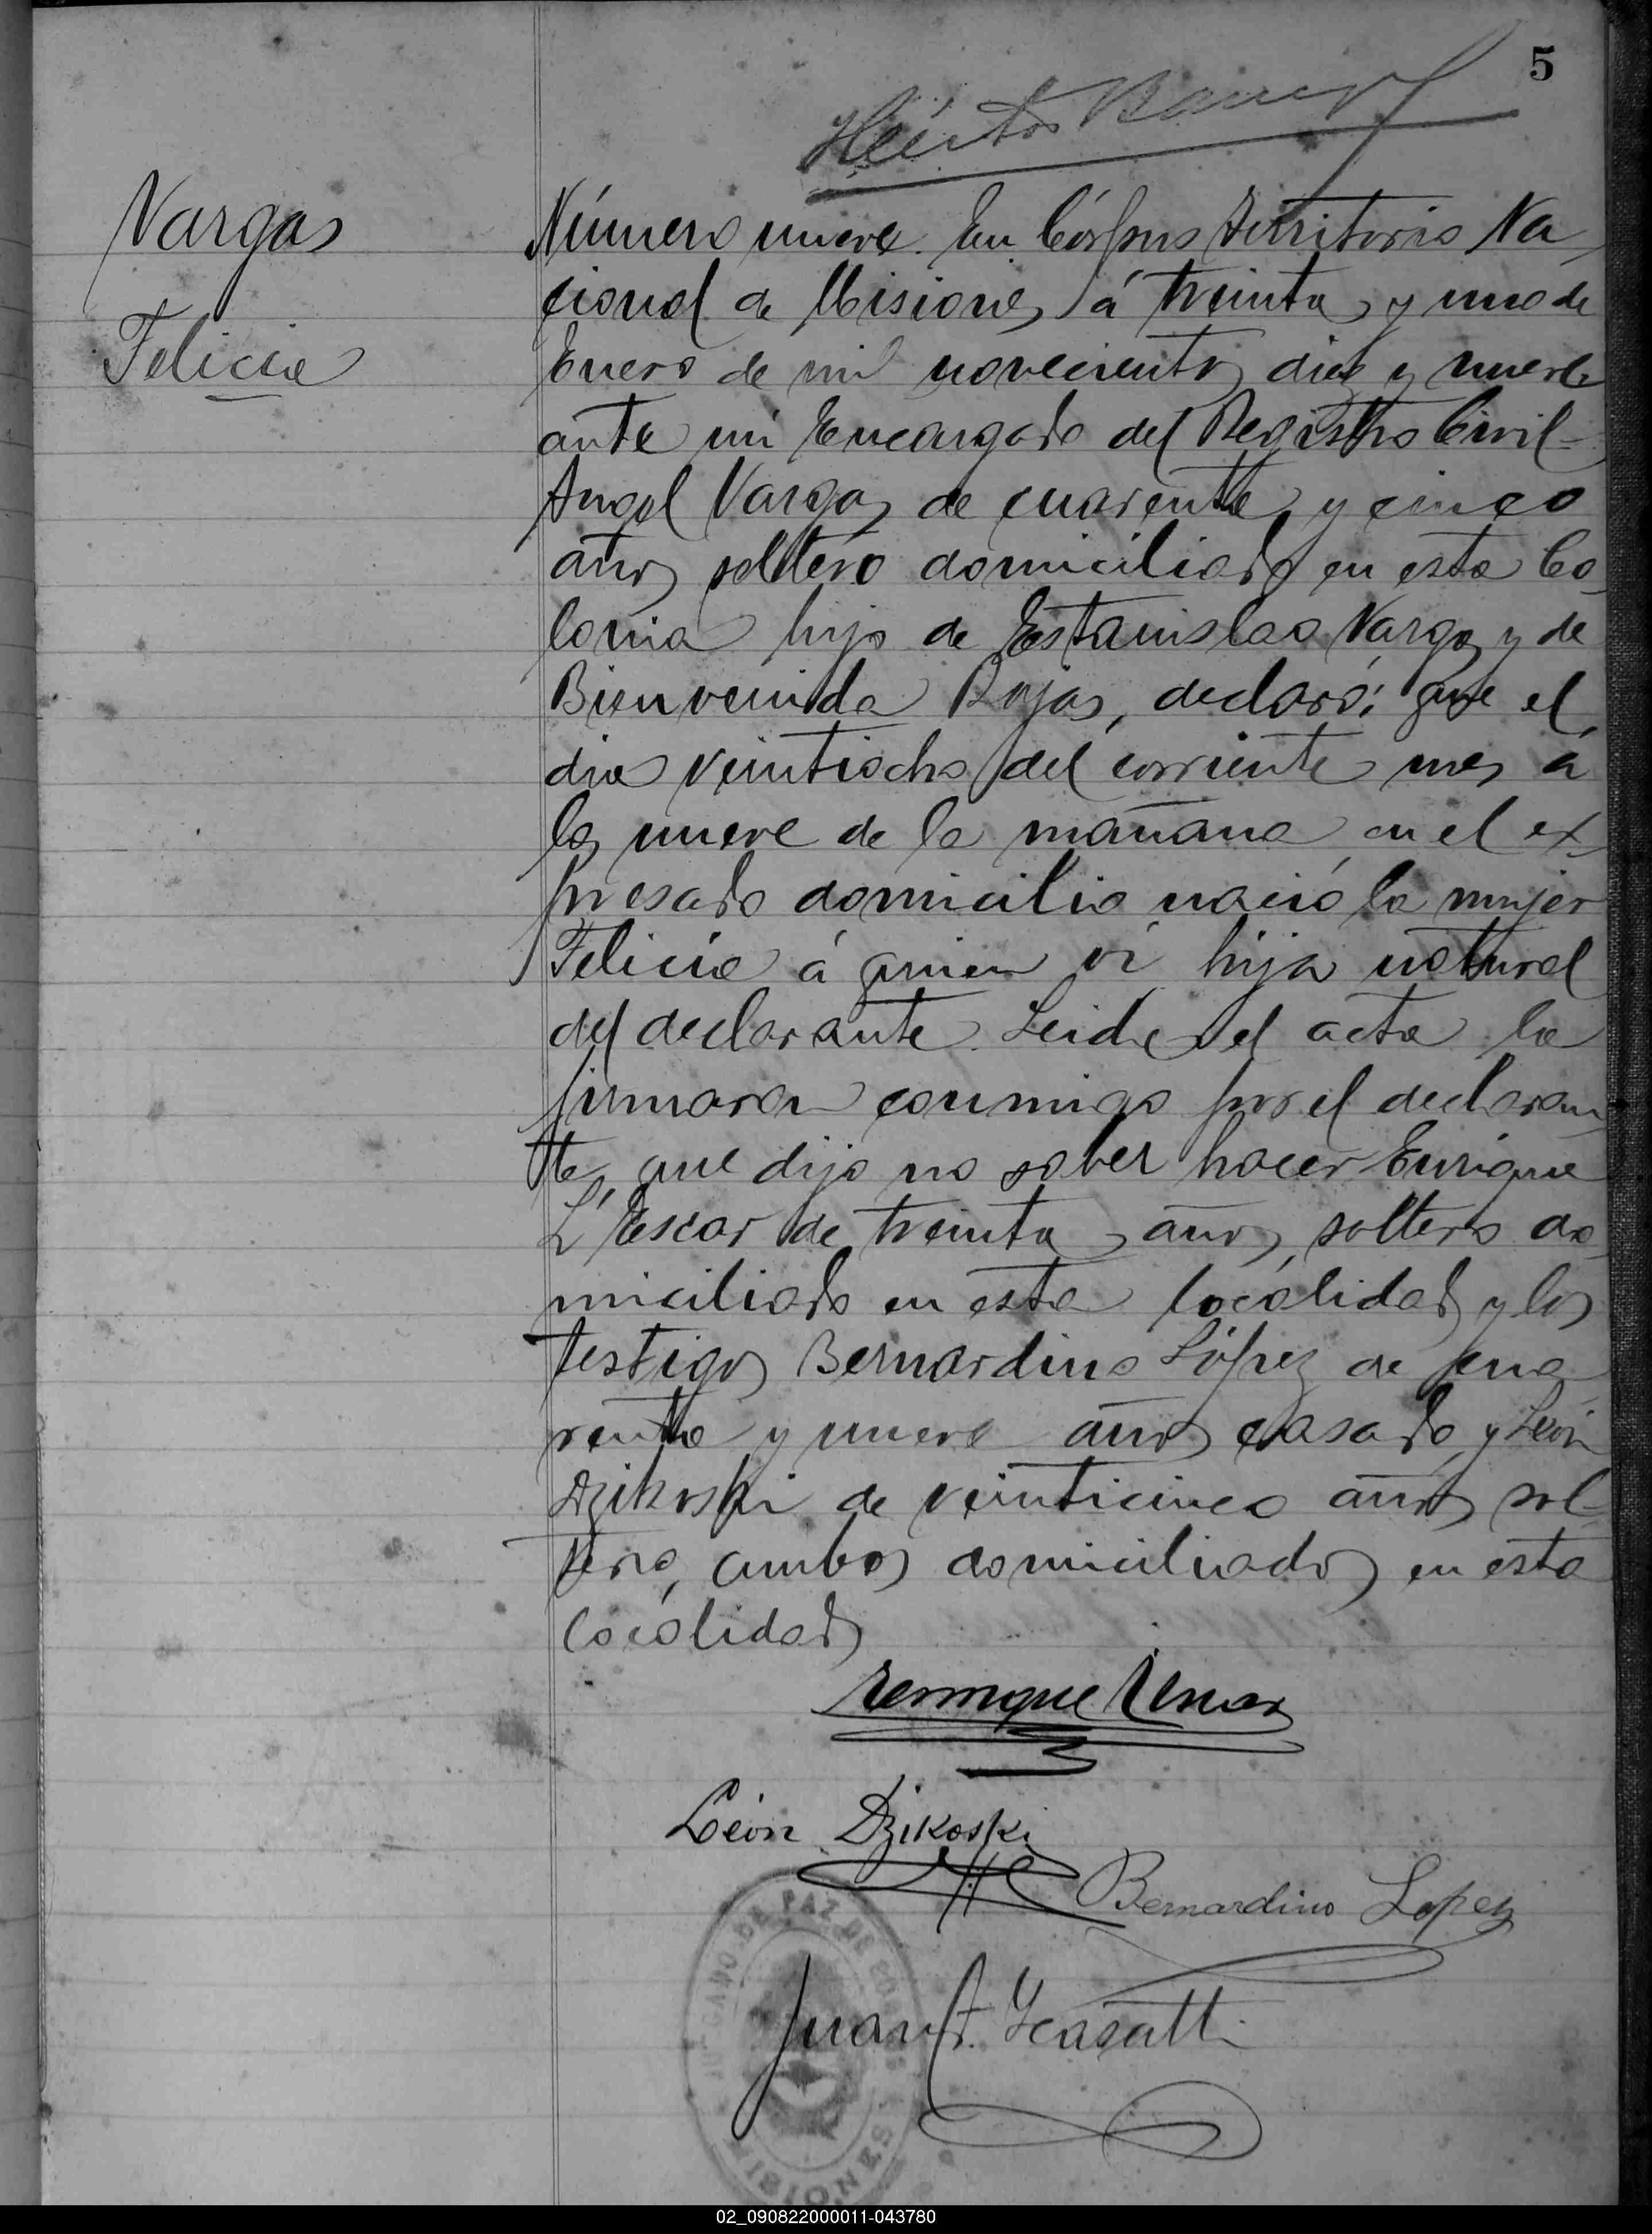 5
Héctor
Vargas
Felicia
Número nueve. En Córpus Territorio Na
cional de Misiones, á treinta y uno de
Enero de mil novecientos diez y nueve
ante mi Encargado del Registro Civil
Angel Vargas de cuarenta y cinco
años soltero domiciliado en esta Co
lonia hijo de Estanislao Vargas y de
Bienvenida Rojas, declaró: que el
dia veintiocho del corriente mes á
las nueve de la mañana en el ex
presado domicilio nació la mujer
Felicia á quien vi hija natural
del declarante. Leida el acta la
firmaron conmigo por el declaran
te, que dijo no saber hacer Enrique
L'Escar de treinta años, soltero do
miciliado en esta localidad y los
testigos Bernardino López de cua
renta y nueve años casado y León
Dzikoski de veinticinco años sol
tero, ambos domiciliados en esta
localidad
Enrique
León Dzikoski
Bernardino Lopez
JUZGADO DE PAZ DE
MISIONES
Juan
02_090822000011-043780